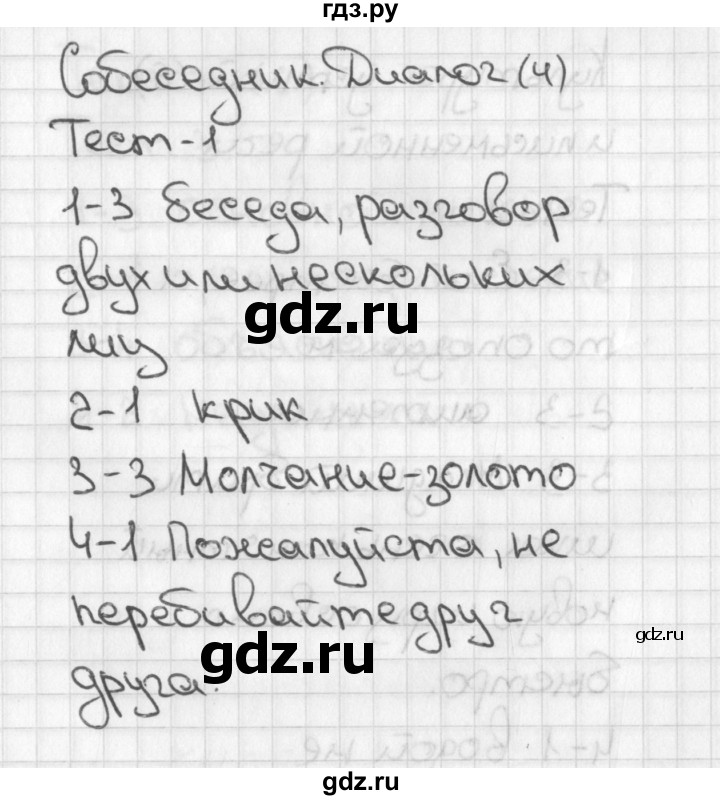 гдз.ру
Собеседник. Диалог (4)
Тест-1
1-3 беседа, разговор
двух или нескольких
лиц
gdz.ru
2-1 крик
3-3 Молчание-золото
4-1 Пожалуйста, не
перебивайте друг
gdz.ru
друга.
gdz.ru
gdz.ru